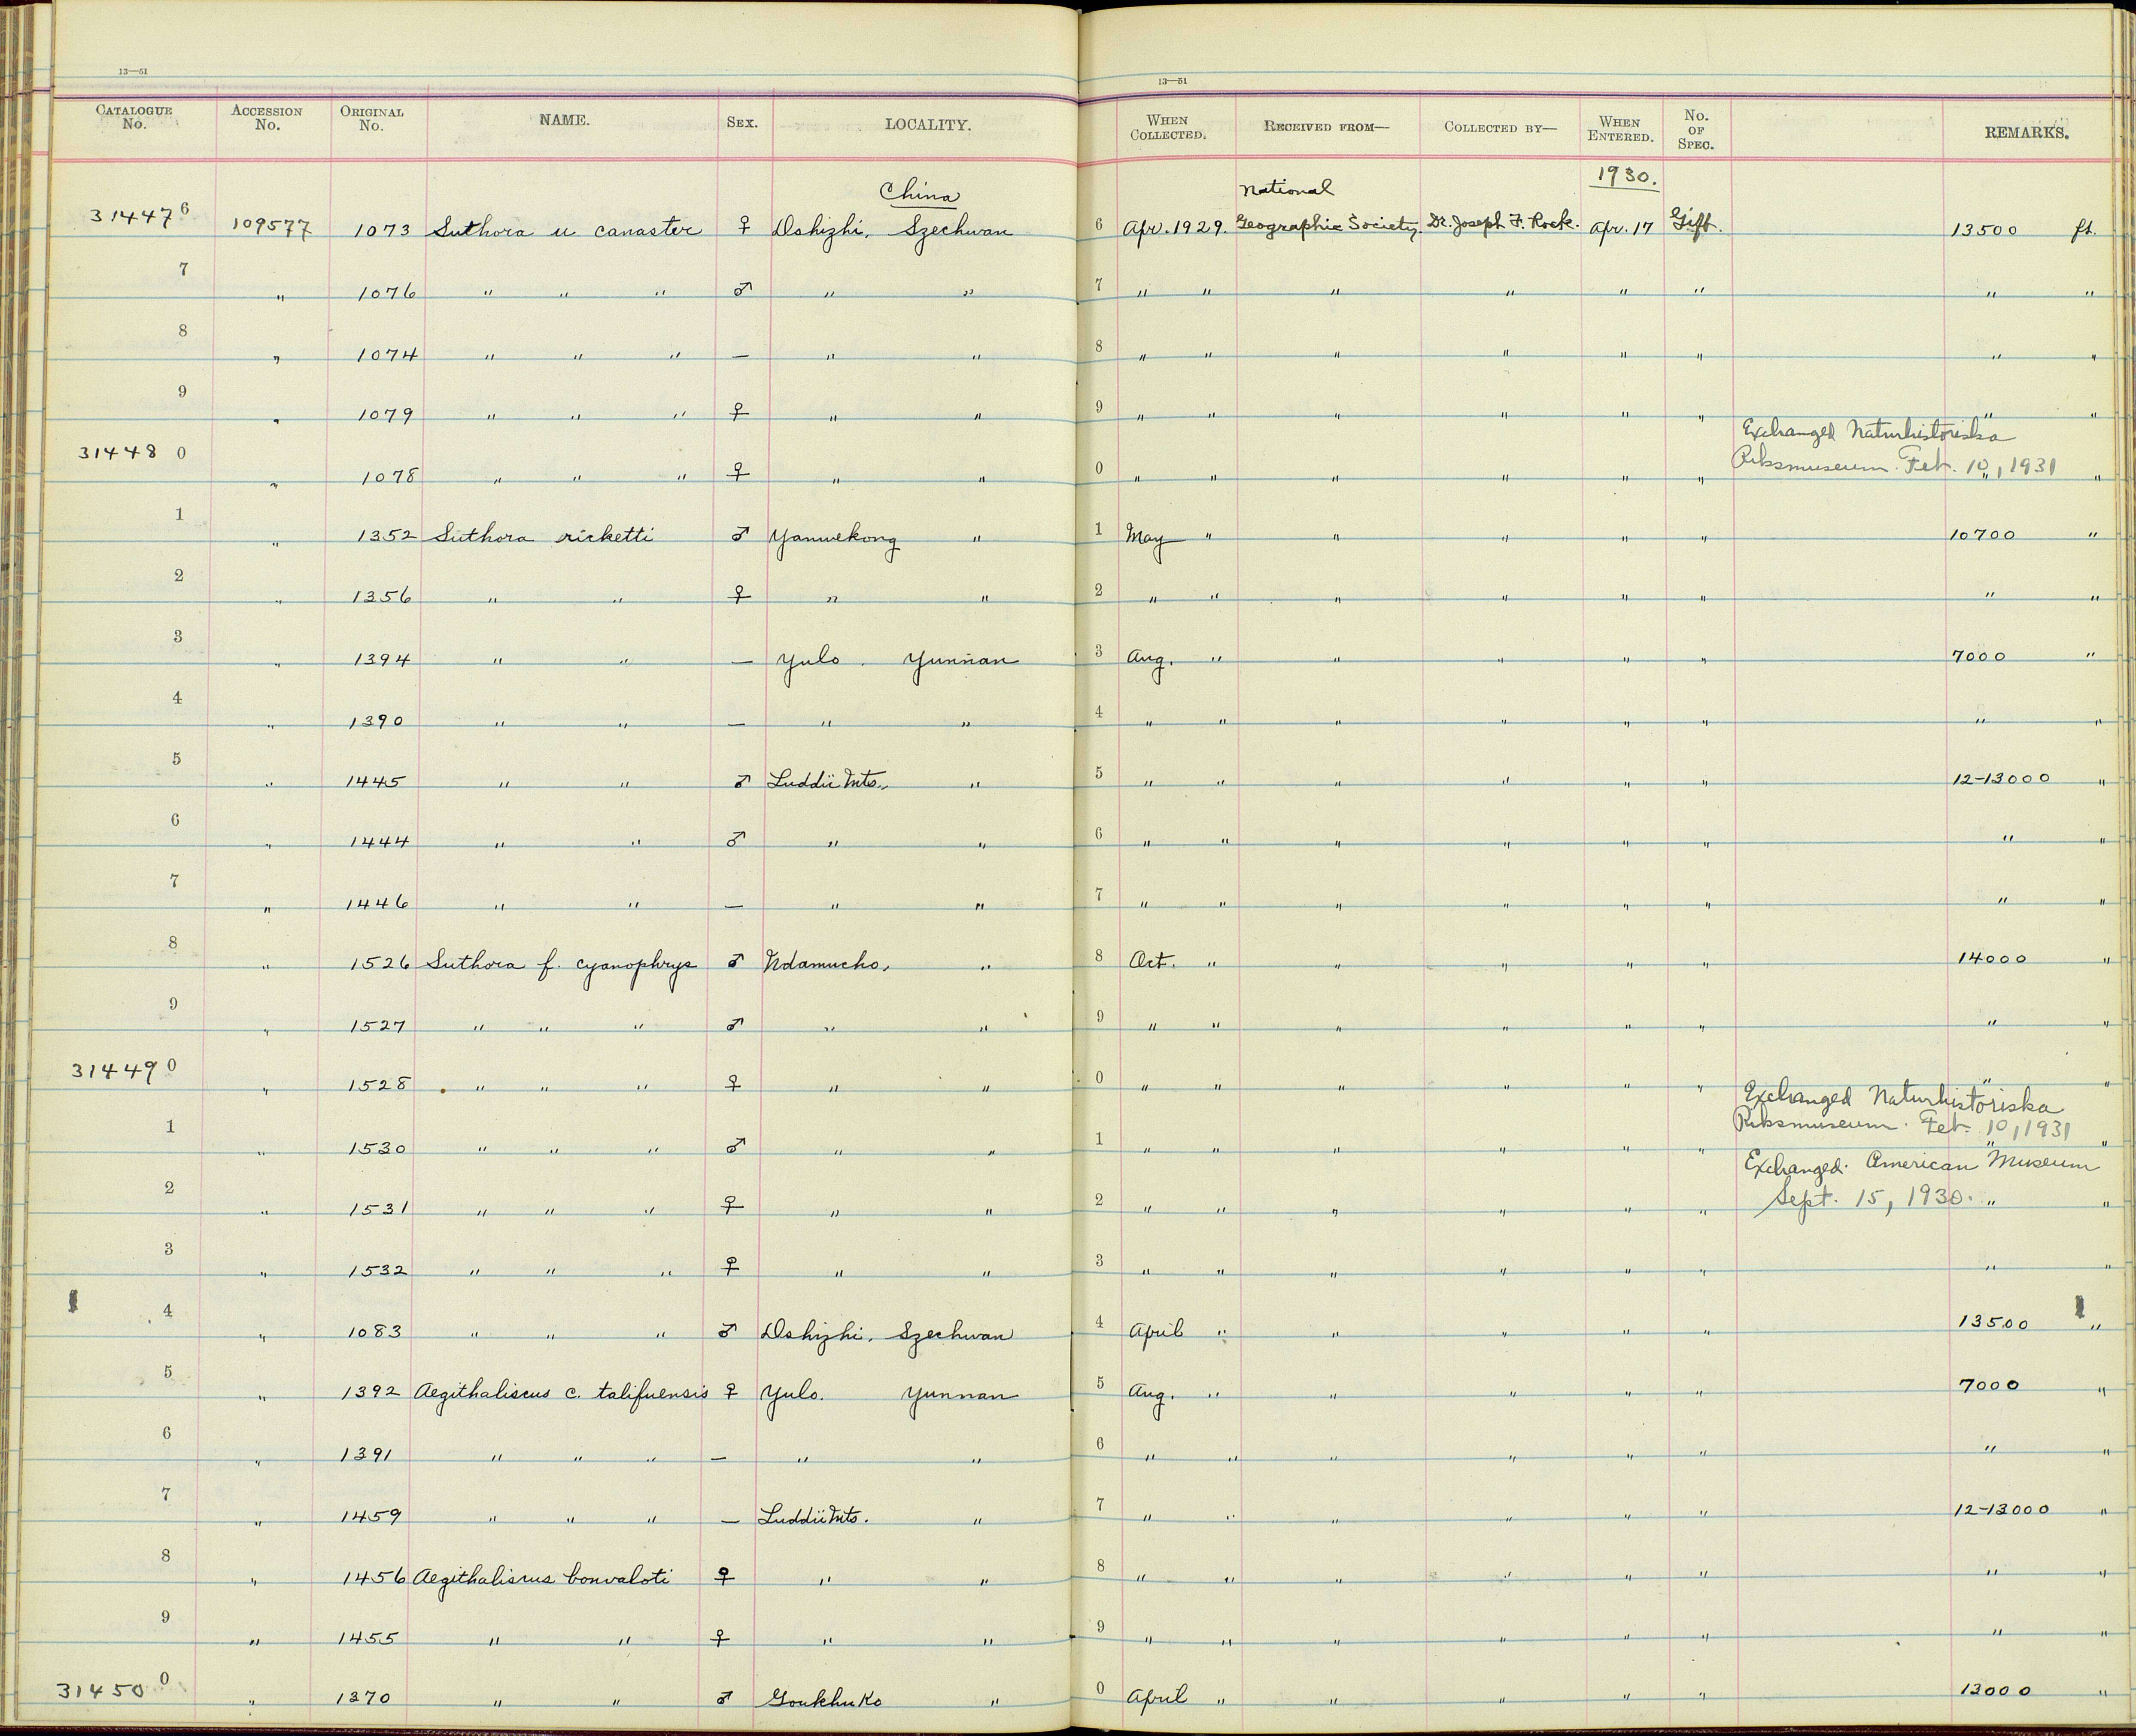 13—51 13—51
CATALOGUE No. ACCESSION No. ORIGINAL No. NAME. SEX. LOCALITY. WHEN COLLECTED. RECEIVED FROM— COLLECTED BY— WHEN ENTERED. No. OF SPEC. REMARKS.
China National 1930.
314476 109577 1073 Suthora u canaster ♀ Dshizhi, Szechwan 6 Apr. 1929. Geographic Society. Dr. Joseph F. Rock. Apr. 17 Gift. 13500 ft.
7 " 1076 " " " ♂ " " 7 " " " " " " " "
8 " 1074 " " " — " " 8 " " " " " " " "
9 " 1079 " " " ♀ " " 9 " " " " " " " "
Exchanged Naturhistoriska
314480 " 1078 " " " ♀ " " 0 " " " " " " Riksmuseum. Feb. 10, 1931 " "
1 " 1352 Suthora ricketti ♂ Yanwekong " 1 May " " " " " 10700 "
2 " 1356 " " ♀ " " 2 " " " " " " " "
3 " 1394 " " — Yulo. Yunnan 3 Aug. " " " " " 7000 "
4 " 1390 " " — " " 4 " " " " " " " "
5 " 1445 " " ♂ Luddü Mts., " 5 " " " " " " 12-13000 "
6 " 1444 " " ♂ " " 6 " " " " " " " "
7 " 1446 " " — " " 7 " " " " " " " "
8 " 1526 Suthora f. cyanophrys ♂ Ndamucho, " 8 Oct. " " " " " 14000 "
9 " 1527 " " " ♂ " " 9 " " " " " " " "
314490 " 1528 " " " ♀ " " 0 " " " " " " " "
Exchanged Naturhistoriska
1 " 1530 " " " ♂ " " 1 " " " " " " Riksmuseum. Feb. 10, 1931 " "
Exchanged. American Museum
2 " 1531 " " " ♀ " " 2 " " " " " " Sept. 15, 1930. " "
3 " 1532 " " " ♀ " " 3 " " " " " " " "
4 " 1083 " " " ♂ Dshizhi, Szechwan 4 April " " " " " 13500 "
5 " 1392 Aegithaliscus c. talifuensis ♀ Yulo. Yunnan 5 Aug. " " " " " 7000 "
6 " 1391 " " " — " " 6 " " " " " " " "
7 " 1459 " " " — Luddü Mts. " 7 " " " " " " 12-13000 "
8 " 1456 Aegithaliscus bonvaloti ♀ " " 8 " " " " " " " "
9 " 1455 " " ♀ " " 9 " " " " " " " "
314500 " 1370 " " ♂ Goukhu Ko " 0 April " " " " " 13000 "